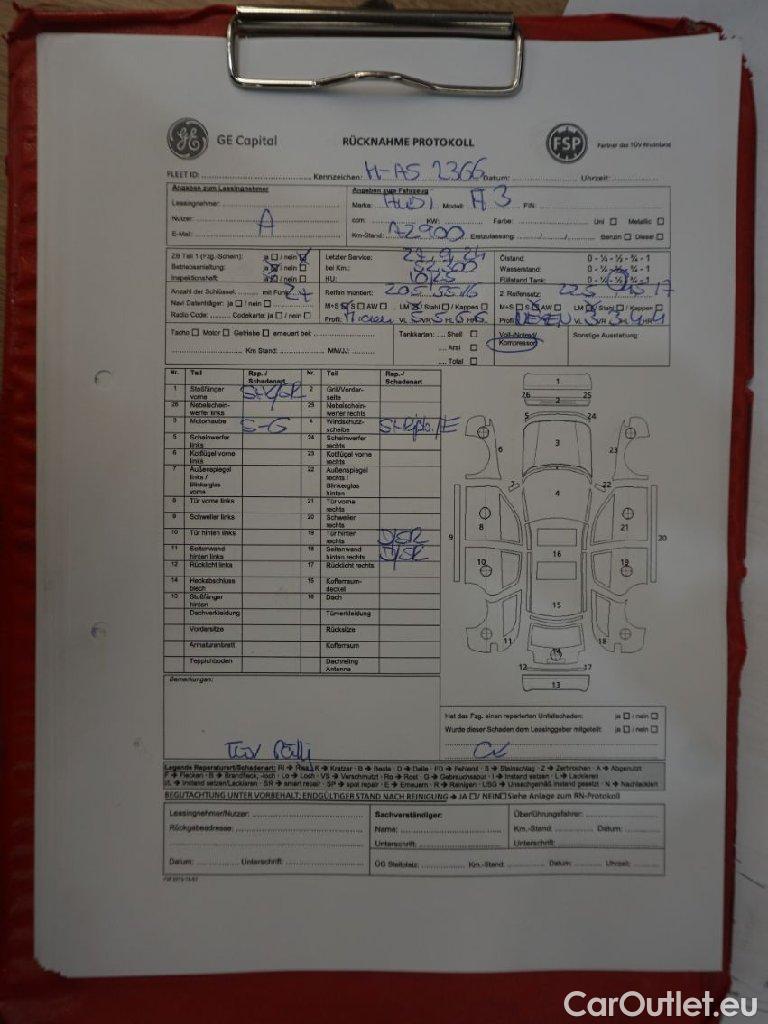 GE GE Capital RÜCKNAHME PROTOKOLL FSP Partner des TÜV Rheinland
FLEET ID: Kennzeichen: H-AS 2366 Datum: Uhrzeit:
Angaben zum Leasingnehmer Angaben zum Fahrzeug
Leasingnehmer: Marke: AUDI Modell: A3 FIN:
Nutzer: A ccm: KW: Farbe: Uni Metallic
E-Mail: Km-Stand: Erstzulassung: Benzin Diesel
ZB Teil 1 (Fzg.-Schein): ja / nein Letzter Service: Ölstand 0 - ¼ - ½ - ¾ - 1
Betriebsanleitung: ja / nein bei Km: Wasserstand: 0 - ¼ - ½ - ¾ - 1
Inspektionsheft: ja / nein HU: Füllstand Tank: 0 - ¼ - ½ - ¾ - 1
Anzahl der Schlüssel: mit Funk: Reifen montiert: 205 55 16 2. Reifensatz: 225 17
Navi Datenträger: ja / nein M+S S AW LM Stahl / Kappen M+S S LM Stahl / Kappen
Radio Code: Codekarte: ja / nein Profil: VL VR HL HR Profil: VL VR HL HR
Tacho Motor Getriebe erneuert bei: Tankkarten: Shell Voll-/Notrad/ Sonstige Ausstattung:
Km Stand: MM/JJ: Aral Kompressor
Total
Nr. Teil Rep. / Schadenart Nr. Teil Rep. / Schadenart
1 Stoßfänger vorne 2 Grill/Vorderseite
26 Nebelscheinwerfer links 25 Nebelscheinwerfer rechts
3 Motorhaube S-G 4 Windschutzscheibe
5 Scheinwerfer links 24 Scheinwerfer rechts
6 Kotflügel vorne links 23 Kotflügel vorne rechts
7 Außenspiegel links / Blinkerglas vorne 22 Außenspiegel rechts / Blinkerglas hinten
8 Tür vorne links 21 Tür vorne rechts
9 Schweller links 20 Schweller rechts
10 Tür hinten links 19 Tür hinten rechts D/SR
11 Seitenwand hinten links 18 Seitenwand hinten rechts D/SR
12 Rücklicht links 17 Rücklicht rechts
14 Heckabschlussblech 15 Kofferraumdeckel
13 Stoßfänger hinten 16 Dach
Dachverkleidung Türverkleidung
Vordersitze Rücksitze
Armaturenbrett Kofferraum
Teppichboden Dachreling Antenne
1
26 25
2
5 24
3
6 23
7 22
4
8 21
9 20
10 16 19
15
11 18
14
12 17
13
Bemerkungen:
Hat das Fzg. einen reparierten Unfallschaden: ja / nein
Wurde dieser Schaden dem Leasinggeber mitgeteilt: ja / nein
Legende Reparaturart/Schadenart: RI → Riss K → Kratzer B → Beule D → Delle FO → Fehlend S → Steinschlag Z → Zerbrochen A → Abgenutzt
F → Flecken B → Brandfleck, -loch Lo → Loch VS → Verschmutzt Ro → Rost G → Gebrauchsspur I → Instand setzen L → Lackieren
I/L → Instand setzen/Lackieren SR → smart repair SP → spot repair E → Erneuern R → Reinigen USG → Unsachgemäß instand gesetzt N → Nachlackieren
BEGUTACHTUNG UNTER VORBEHALT; ENDGÜLTIGER STAND NACH REINIGUNG → JA / NEIN Siehe Anlage zum RN-Protokoll
Leasingnehmer/Nutzer: Sachverständiger: Überführungsfahrer:
Rückgabeadresse: Name: Km.-Stand: Datum:
Unterschrift: Unterschrift:
Datum: Unterschrift: ÜG Stellplatz: Km.-Stand: Datum: Uhrzeit:
CarOutlet.eu